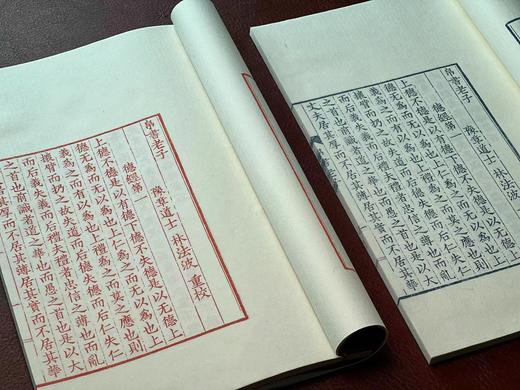 帛書老子
豫章道士 林法波 重校
德經第一
上德不德是以有德下德不失德是以无德上
德无為而无以為也上仁為之而无以為也上
義為之而有以為也上禮為之而莫之應也則
攘臂而扔之故失道而后德失德而后仁失仁
而后義失義而后禮夫禮者忠信之薄也而亂
之首也前識者道之華也而愚之首也是以大
居其厚而不居其薄居其實而不居其華
帛書老子
豫章道士 林法波
德經第一
上德不德是以有德下德不失德是以无德上
德无為而无以為也上仁為之而无以為也上
義為之而有以為也上禮為之而莫之應也則
攘臂而扔之故失道而后德失德而后仁失仁
而后義失義而后禮夫禮者忠信之薄也而亂
之首也前識者道之華也而愚之首也是以大
丈夫居其厚而不居其薄居其實而不居其華